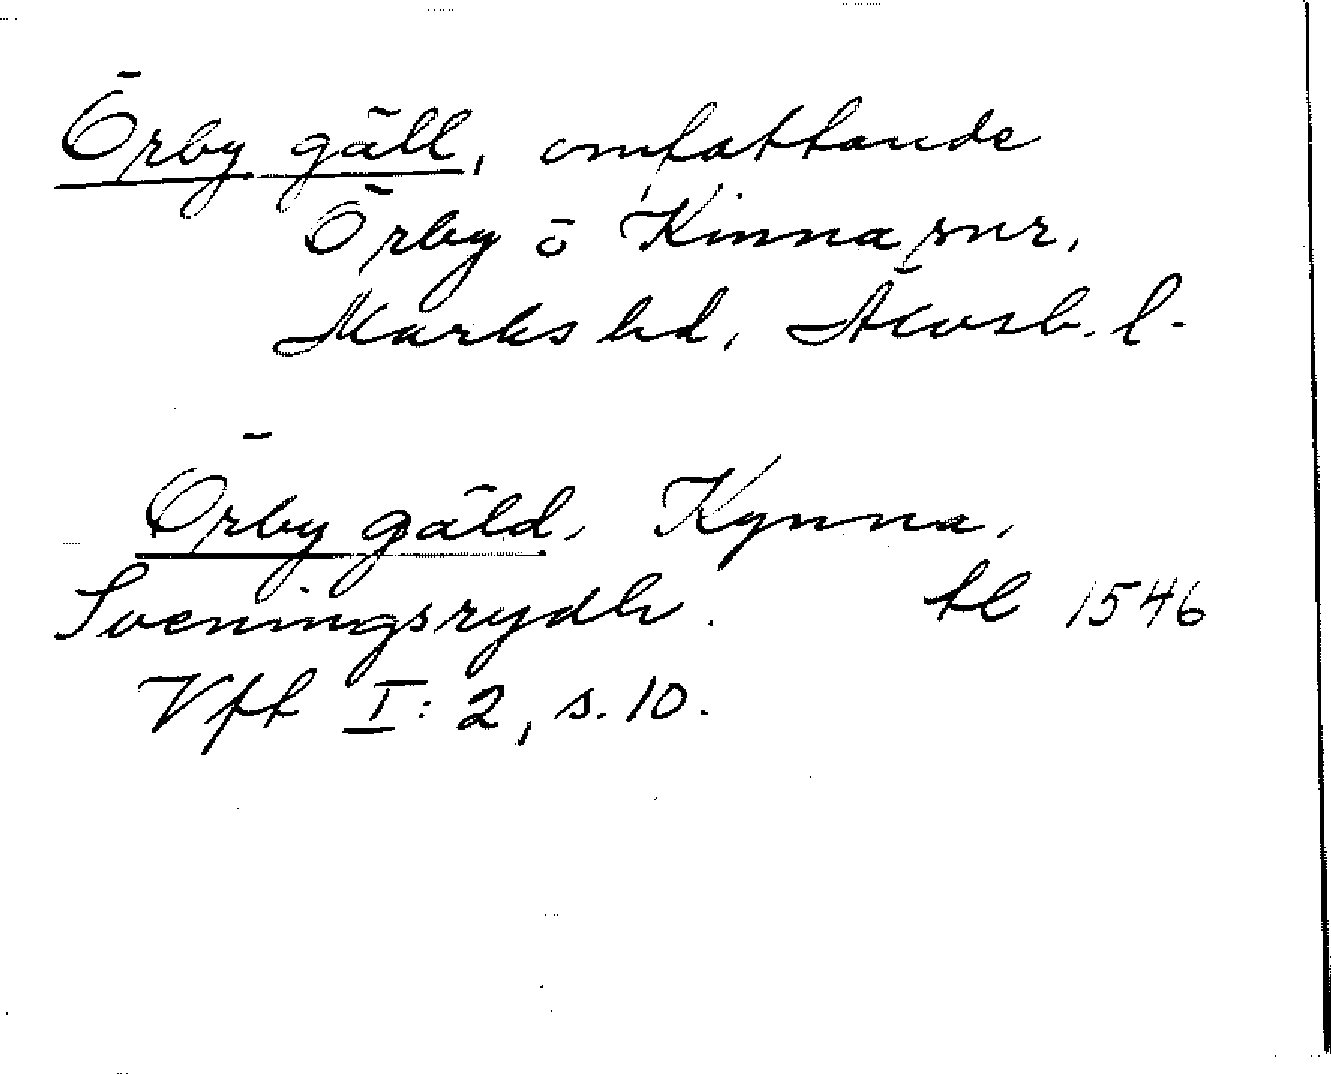 Örby gäll, omfattande
Örby o Kinna snr,
Marks hd, Älvsb. l.
Örby gäld, Kynna,
Sveningsrydh. tl 1546
Vft I:2, s. 10.